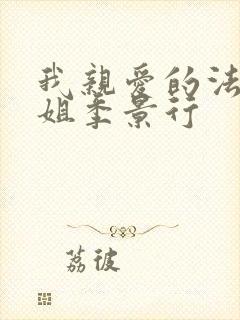 我親愛的法
姐季景行
荔彼